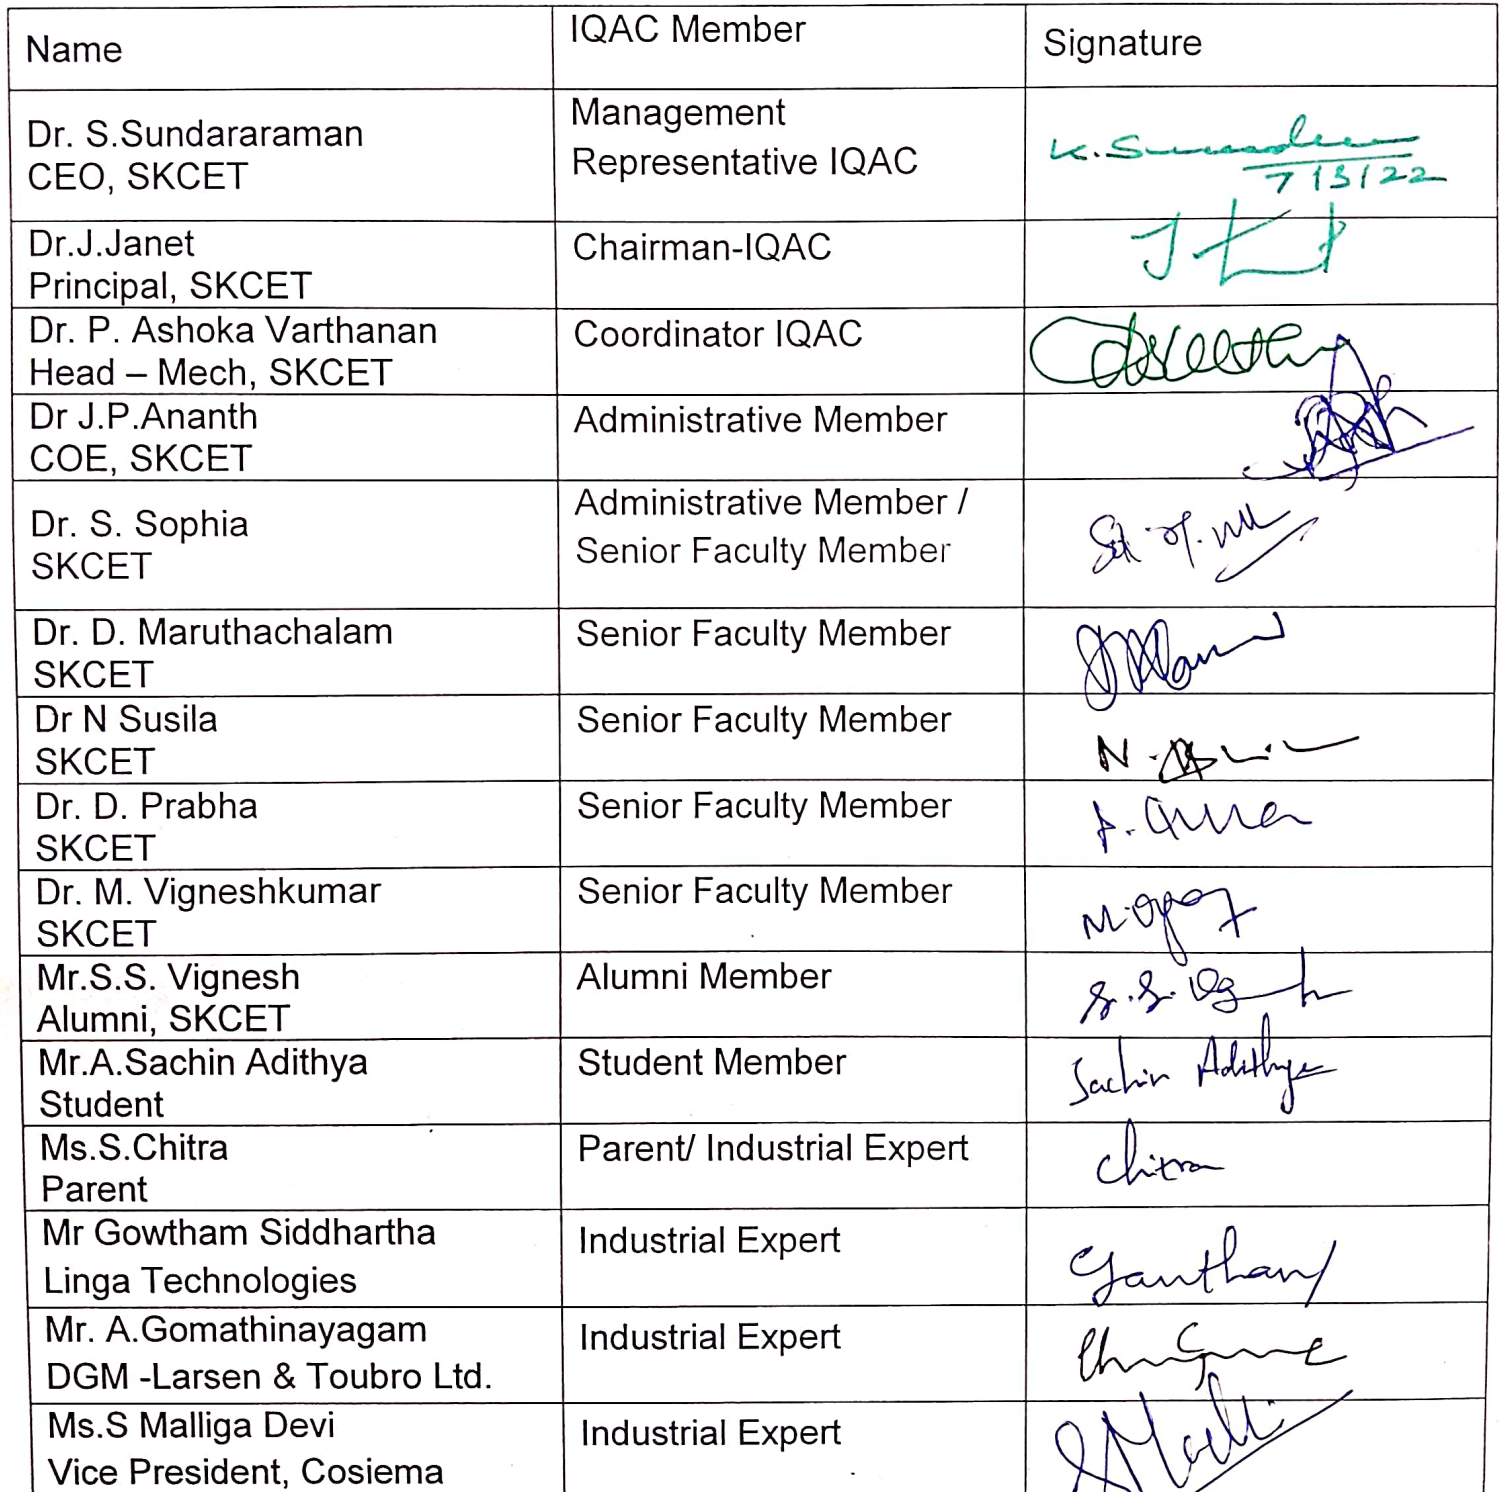 Name
IQAC Member
Signature
Dr. S.Sundararaman
CEO, SKCET
Management
Representative IQAC
7/3/22
Dr.J.Janet
Principal, SKCET
Chairman-IQAC
Dr. P. Ashoka Varthanan
Head – Mech, SKCET
Coordinator IQAC
Dr J.P.Ananth
COE, SKCET
Administrative Member
Dr. S. Sophia
SKCET
Administrative Member /
Senior Faculty Member
Dr. D. Maruthachalam
SKCET
Senior Faculty Member
Dr N Susila
SKCET
Senior Faculty Member
Dr. D. Prabha
SKCET
Senior Faculty Member
Dr. M. Vigneshkumar
SKCET
Senior Faculty Member
Mr.S.S. Vignesh
Alumni, SKCET
Alumni Member
Mr.A.Sachin Adithya
Student
Student Member
Sachin Adithya
Ms.S.Chitra
Parent
Parent/ Industrial Expert
Chitra
Mr Gowtham Siddhartha
Linga Technologies
Industrial Expert
Mr. A.Gomathinayagam
DGM -Larsen & Toubro Ltd.
Industrial Expert
Ms.S Malliga Devi
Vice President, Cosiema
Industrial Expert